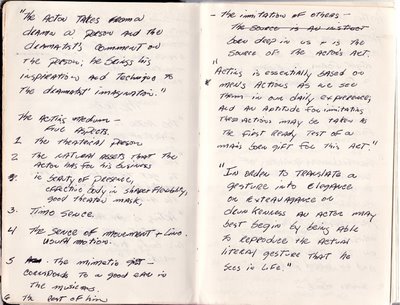 "The Actor Takes from a
drama a person and the
dramatist's comment on
the person; he brings his
inspiration and technique to
the dramatists' imagination."
The Acting Medium –
Five Aspects.
1. the theatrical person
2. The natural assets that the
Actor has for his business
is beauty of presence,
effective body in shape & flexibility,
good theater mask.
3. Time Sence.
4. The Sence of movement + line.
visual motion.
5. The mimetic gift –
corresponds to a good ear in
the musician.
6 The rest of him
– the imitation of others –
The Source is an instinct
born deep in us & is the
source of the actor's act.
"Acting is essentially based on
men's actions as we see
them in our daily experience,
and an aptitude for imitating
these actions may be taken as
the first ready test of a
man's born gift for this act."
"In order to translate a
gesture into elegance
or extravagance or
drunkenness an actor may
best begin by being able
to reproduce the actual
literal gesture that he
sees in life."